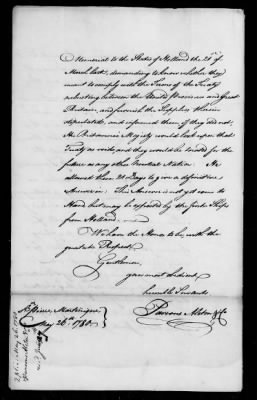 Memorial to the States of Holland the 21st of
March last, demanding to know whether they
meant to comply with the Terms of the Treaty
subsisting between the United Provinces and Great
Britain, and furnish the Supplies therein
stipulated, and informed them if they did not:
His Britannic Majesty would look upon that
Treaty as void, and they would be treated for the
future as any other Neutral Nation. He
allowed them 21 Days to give a definitive
Answer in. This Answer is not yet come to
Hand but may be expected by the first Ships
from Holland.
We have the Honor to be, with the
greatest Respect,
Gentlemen,
your most obedient
humble Servants
Parsons Alston & Co
St Pierre, Martinique
May 26th 1780